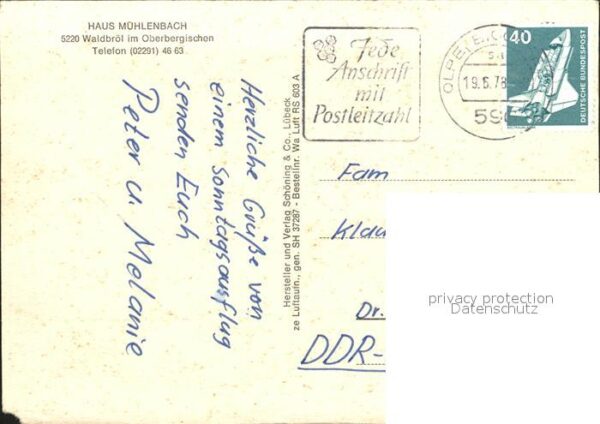 HAUS MÜHLENBACH
5220 Waldbröl im Oberbergischen
Telefon (02291) 46 63
Herzliche Grüße von
einem Sonntagsausflug
senden Euch
Peter u. Melanie
Hersteller und Verlag Schöning & Co., Lübeck
ze Luftaufn., gen. SH 37287 - Bestellnr. Wa Luft RS 603 A
Jede
Anschrift
mit
Postleitzahl
OLPE
19.6.78
59
40
DEUTSCHE BUNDESPOST
Fam
Klau
Dr.
DDR-
privacy protection
Datenschutz